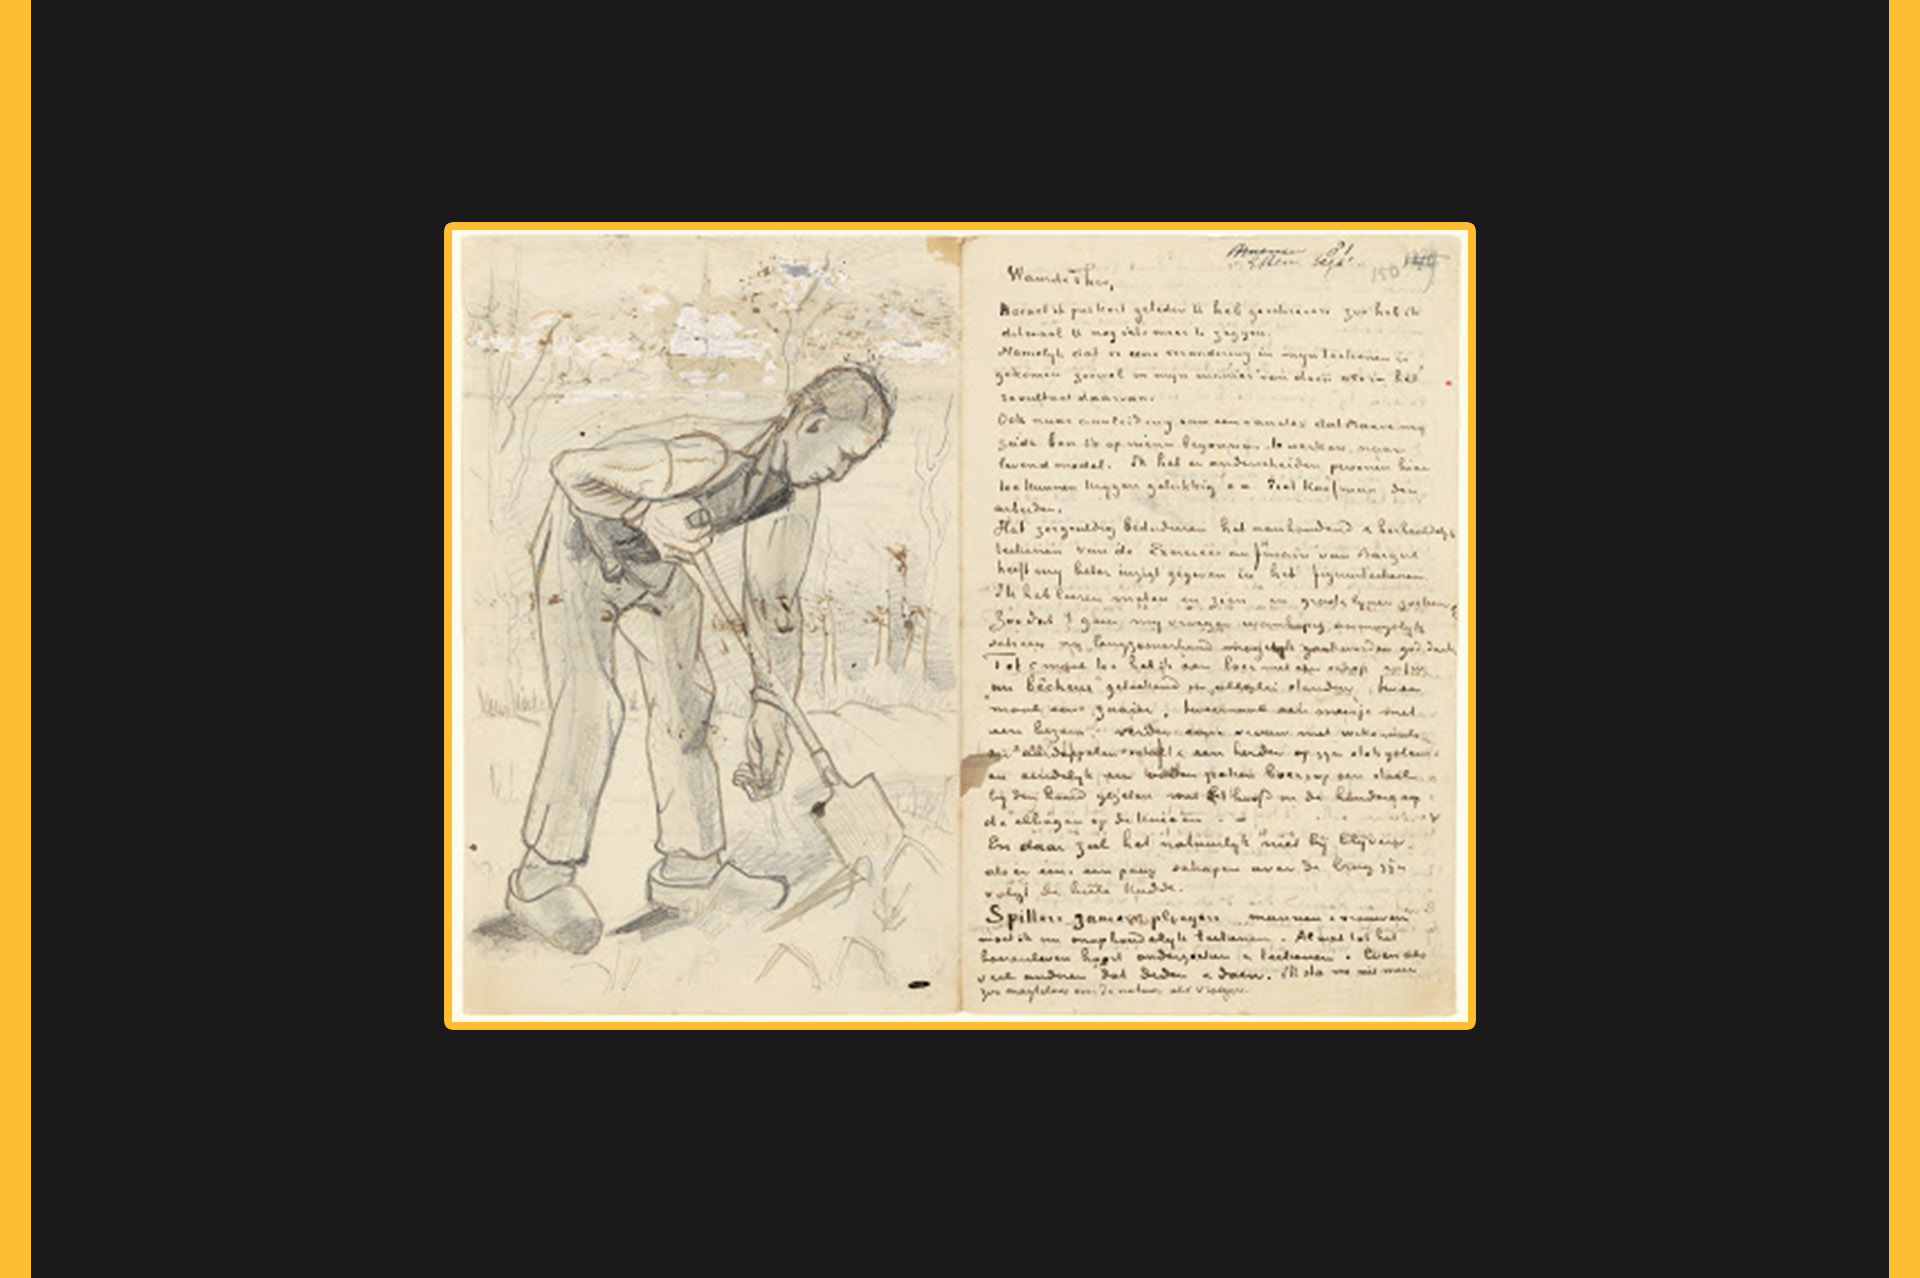 81
Sept.
150
Waarde Theo,
Hoewel ik pas kort geleden U heb geschreven zoo heb ik
ditmaal U nog iets meer te zeggen.
Namelyk dat er eene verandering in myn teekenen is
gekomen zoowel in myn manier van doen als in het
resultaat daarvan.
Ook naar aanleiding van een en ander dat Mauve my
zeide ben ik op nieuw begonnen te werken naar
levend model. Ik heb er onderscheiden personen hier
toe kunnen krygen gelukkig o.a. Piet Kaufman den
arbeider.
Het zorgvuldig bestuderen het aanhoudend & herhaaldelyk
teekenen van de Exercices au fusain van Bargue
heeft my beter inzigt gegeven in het figuurteekenen.
Ik heb leeren meten en zien en groote lynen zoeken
Zoodat 't geen my vroeger wanhopig onmogelyk
scheen nu langzamerhand mogelyk gaat worden god dank
Tot 5 maal toe heb ik een boer met een schop
"un bêcheur" geteekend in allerlei standen, twee
maal een zaaier, tweemaal een meisje met
een bezem. verder eene vrouw met witte muts
die aardappelen schilt & een herder op zyn stok geleund
en eindelyk een ouden zieken boer op een stoel
by den haard gezeten met het hoofd in de handen &
de ellebogen op de knieen.
En daar zal het natuurlyk niet by blyven.
als er eens een paar schapen over de brug zyn
volgt de heele kudde.
Spitters zaaiers ploegers mannen & vrouwen
moet ik nu onophoudelyk teekenen. Al wat tot het
boerenleven hoort onderzoeken & teekenen. Even als
veel anderen dat deden & doen. Ik sta nu niet meer
zoo magteloos voor de natuur als vroeger.